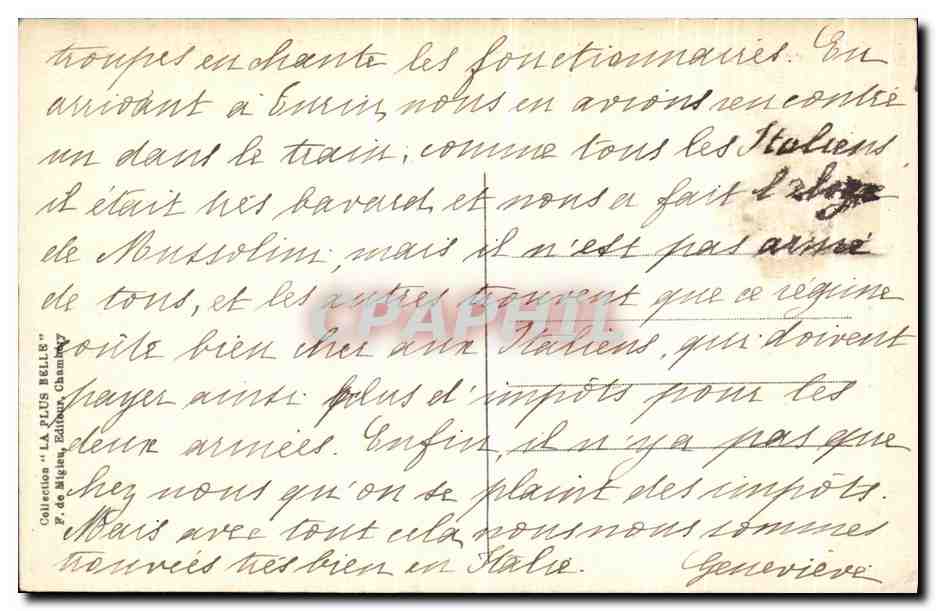 troupes enchante les fonctionnaires. En
arrivant à Turin, nous en avions rencontré
un dans le train; comme tous les Italiens,
il était très bavard et nous a fait l'éloge
de Mussolini, mais il n'est pas aimé
de tous, et les autres trouvent que ce régime
coûte bien cher aux Italiens, qui doivent
payer ainsi plus d'impôts pour les
deux armées. Enfin, il n'y a pas que
chez nous qu'on se plaint des impôts.
Mais avec tout cela, nous nous sommes
trouvés très bien en Italie. Geneviève
Collection "LA PLUS BELLE"
F. de Miglen, Editeur, Chambéry
CPAPHIL